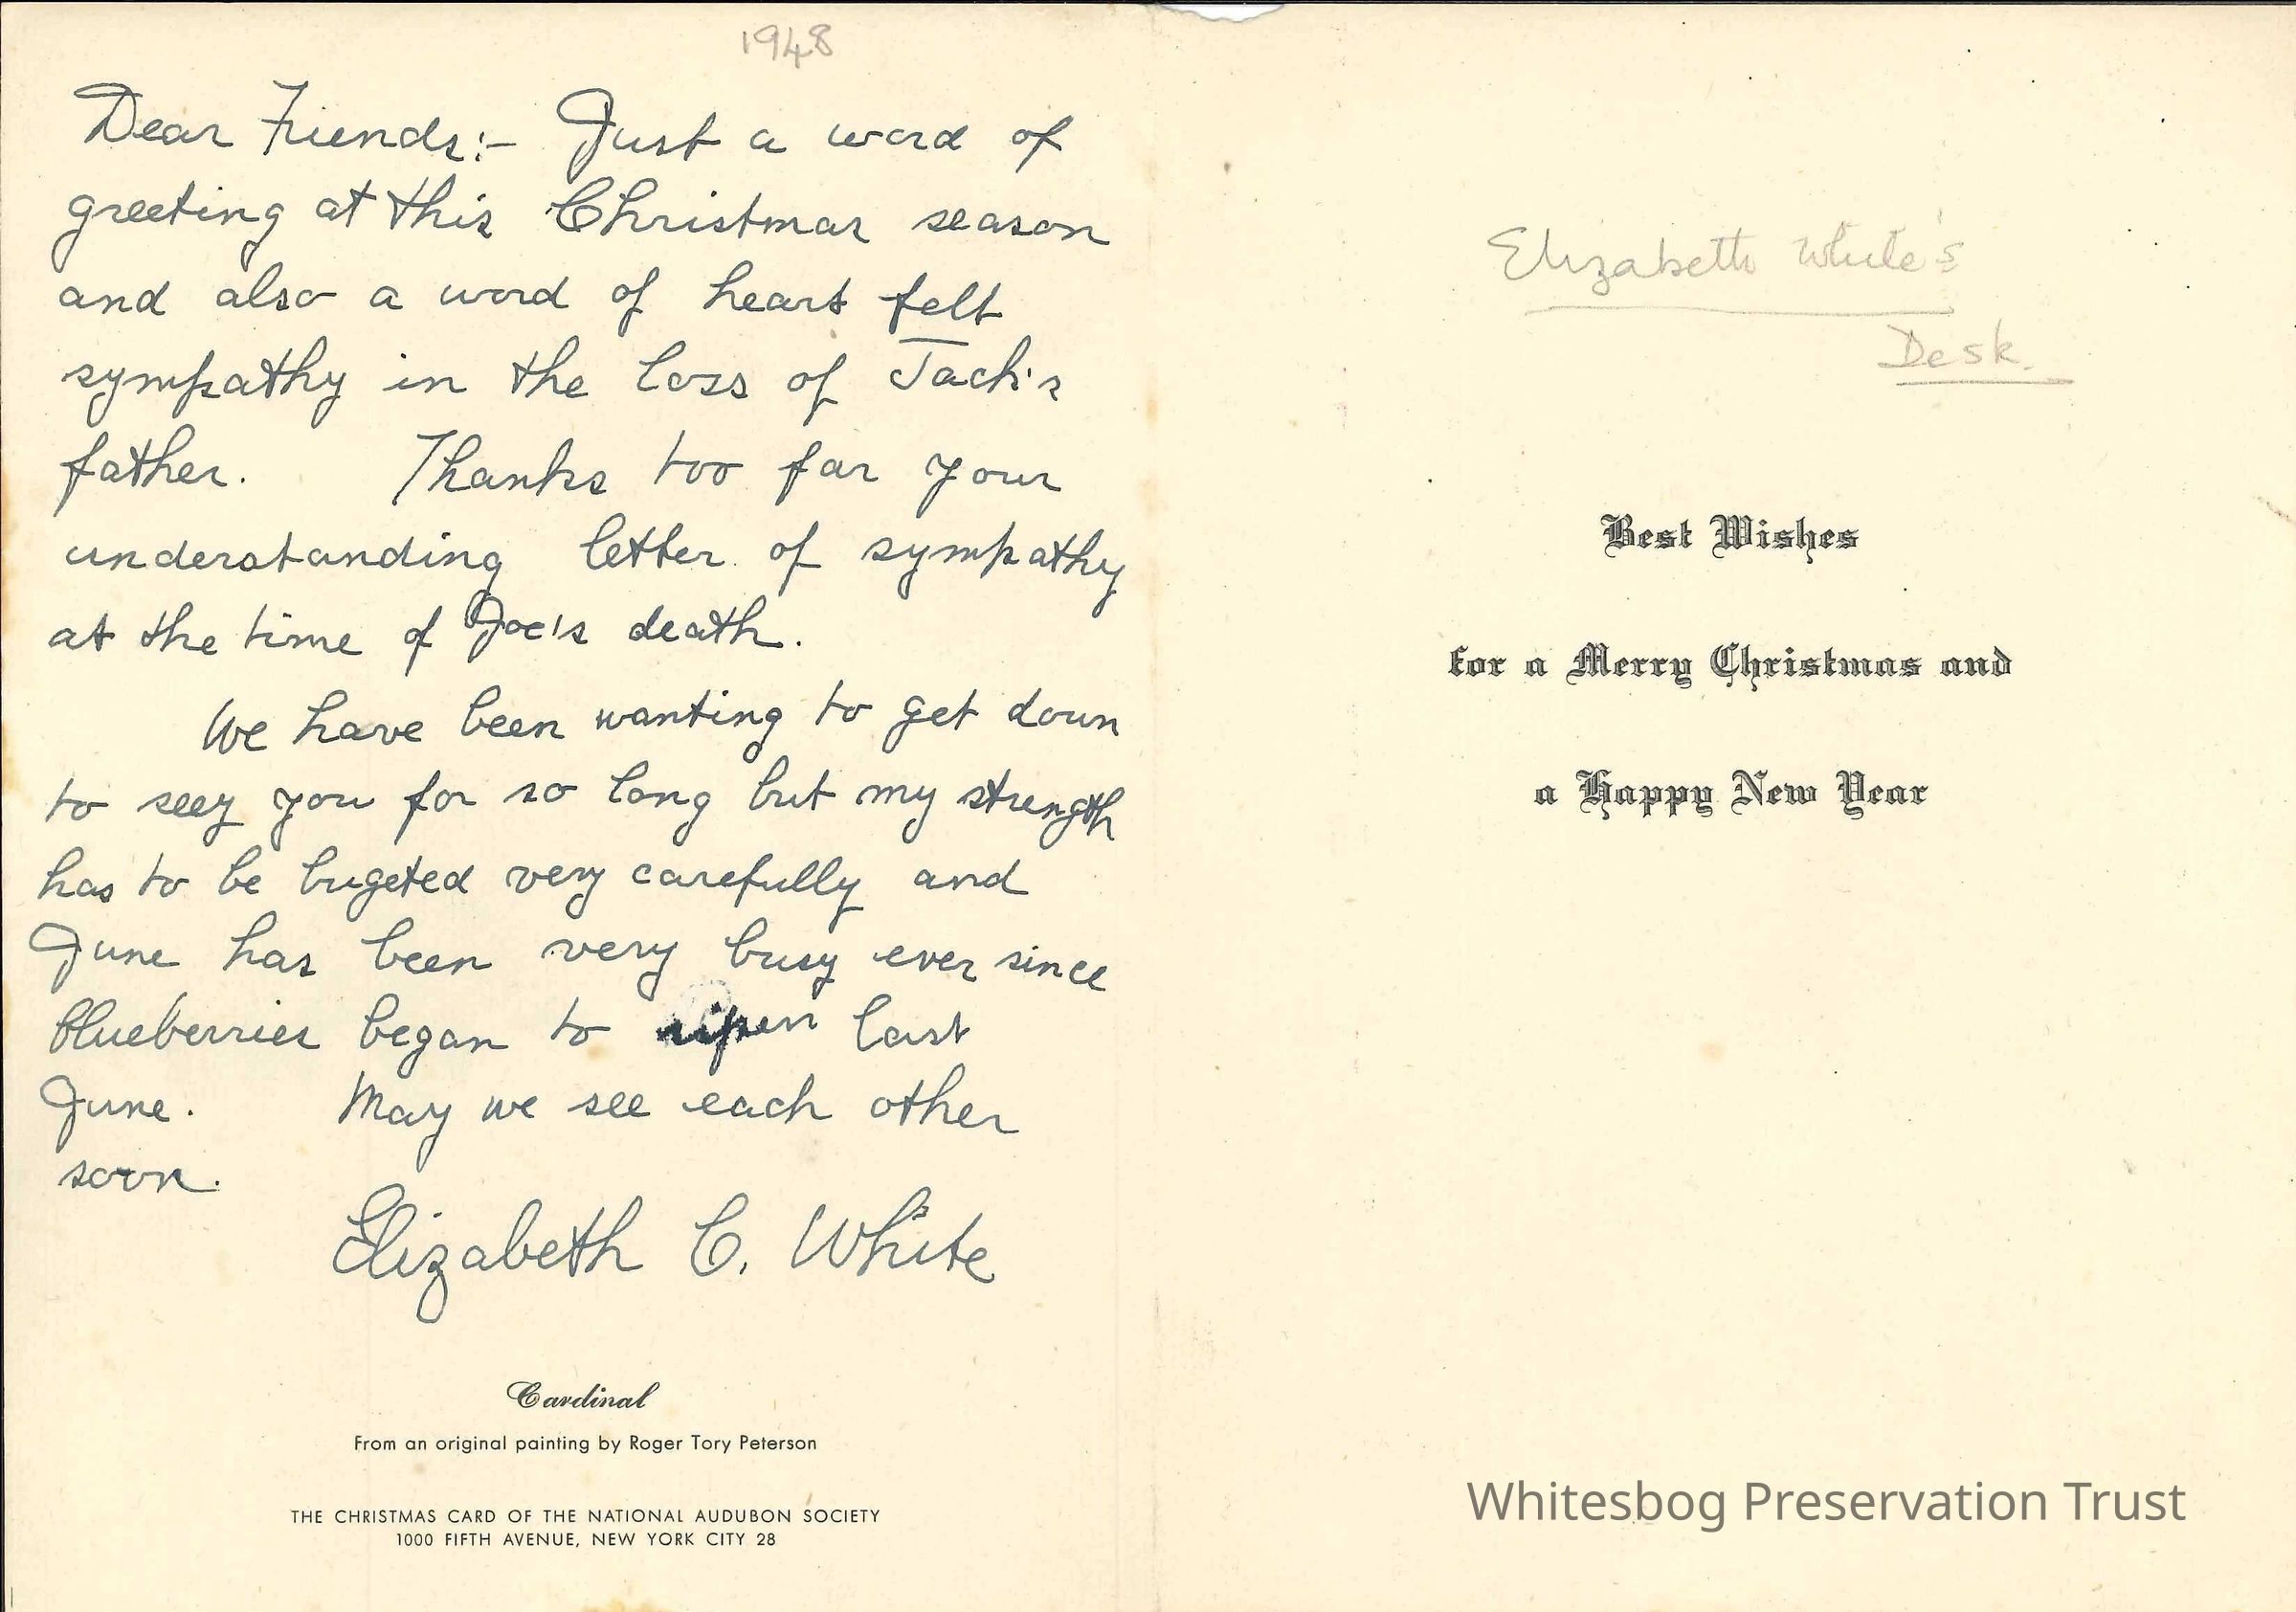 1948
Dear Friends:- Just a word of
greeting at this Christmas season
and also a word of heart felt
sympathy in the loss of Jack's
father. Thanks too for your
understanding letter of sympathy
at the time of Joe's death.
We have been wanting to get down
to seey you for so long but my strength
has to be bugeted very carefully and
June has been very busy ever since
blueberries began to ripen last
June. May we see each other
soon.
Elizabeth C. White
Cardinal
From an original painting by Roger Tory Peterson
THE CHRISTMAS CARD OF THE NATIONAL AUDUBON SOCIETY
1000 FIFTH AVENUE, NEW YORK CITY 28
Elizabeth White's
Desk.
Best Wishes
for a Merry Christmas and
a Happy New Year
Whitesbog Preservation Trust